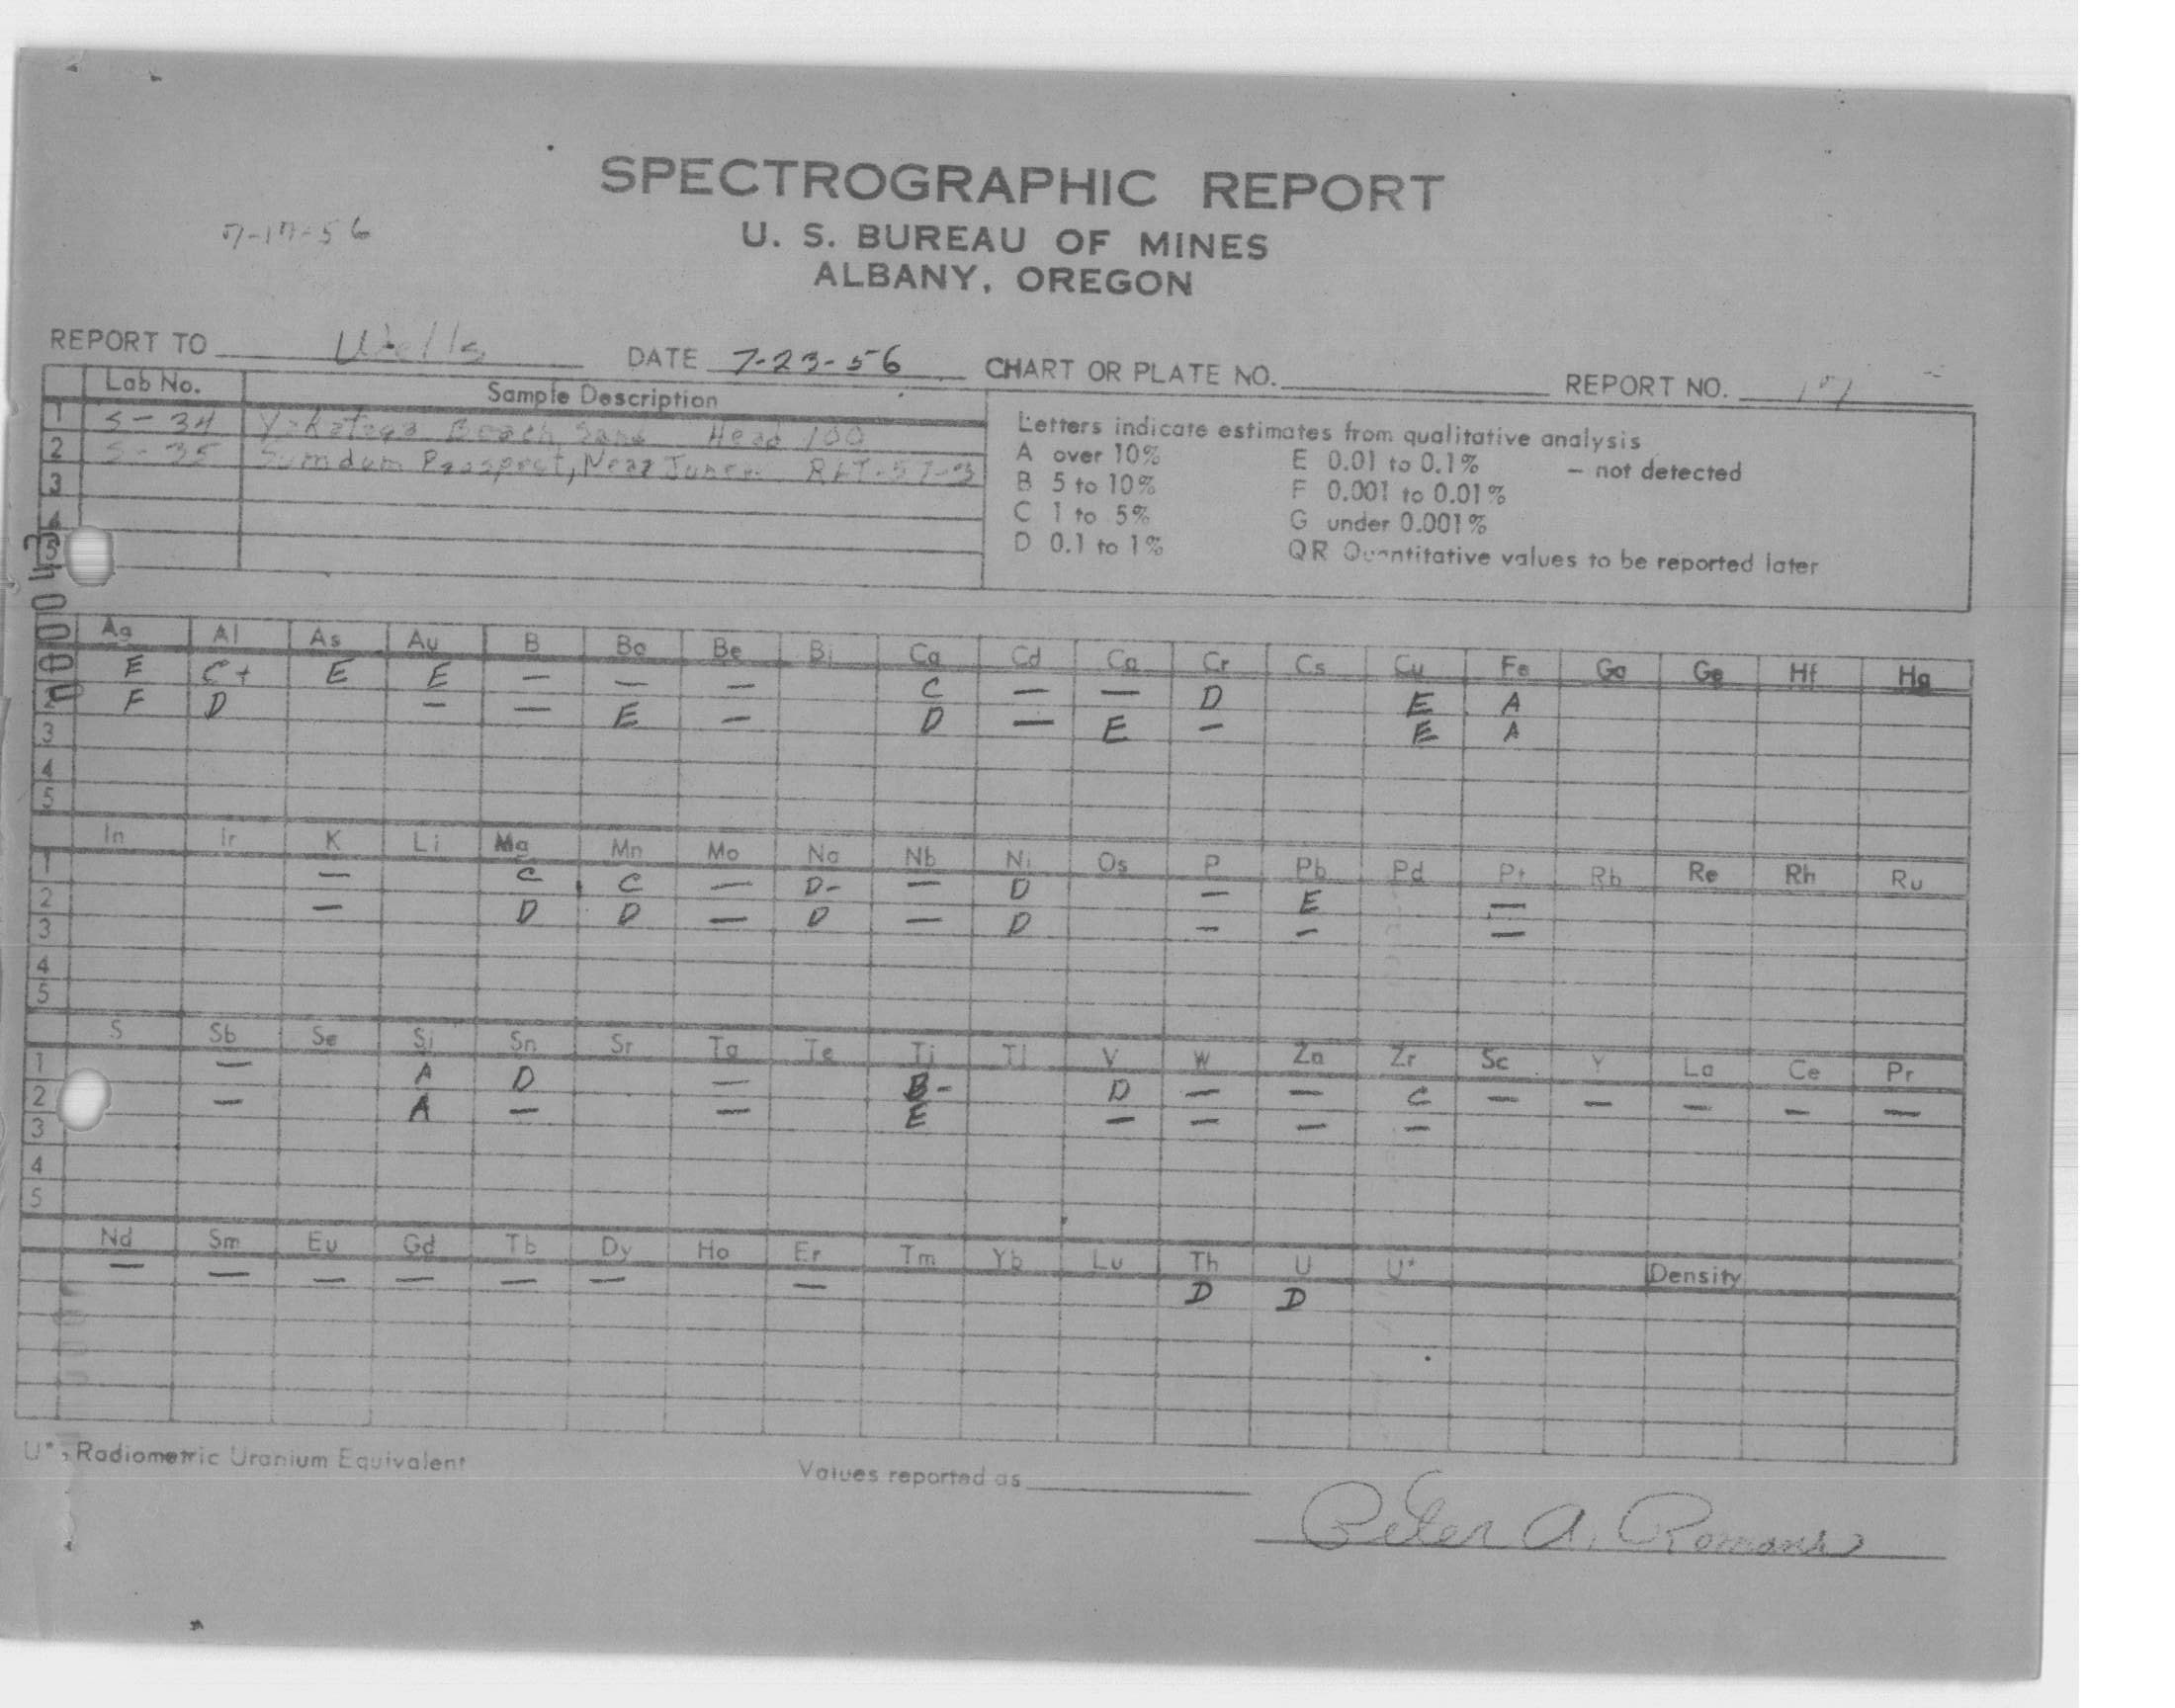 SPECTROGRAPHIC REPORT
7-17-56
U. S. BUREAU OF MINES
ALBANY, OREGON
REPORT TO Wells DATE 7-23-56 CHART OR PLATE NO. REPORT NO.
Lab No. Sample Description
1 S-34 Yakataga Beach Sand Head 100
2 S-35 Sumdum Prospect, Near Juneau
3
4
5
Letters indicate estimates from qualitative analysis
A over 10% E 0.01 to 0.1% – not detected
B 5 to 10% F 0.001 to 0.01%
C 1 to 5% G under 0.001%
D 0.1 to 1% QR Quantitative values to be reported later
Ag Al As Au B Ba Be Bi Ca Cd Co Cr Cs Cu Fe Ga Ge Hf Hg
E C+ E E — — — C — — D E A
2 F D — — E — D — E — E A
3
4
5
In Ir K Li Mg Mn Mo Na Nb Ni Os P Pb Pd Pt Rb Re Rh Ru
1 — C C — D- — D — E —
2 — D D — D — D — — —
3
4
5
S Sb Se Si Sn Sr Ta Te Ti Tl V W Zn Zr Sc Y La Ce Pr
1 — A D — B- D — — C — — — — —
2 — A — — E — — — —
3
4
5
Nd Sm Eu Gd Tb Dy Ho Er Tm Yb Lu Th U U* Density
— — — — — — — D D
U* - Radiometric Uranium Equivalent
Values reported as
Peter A. Romans